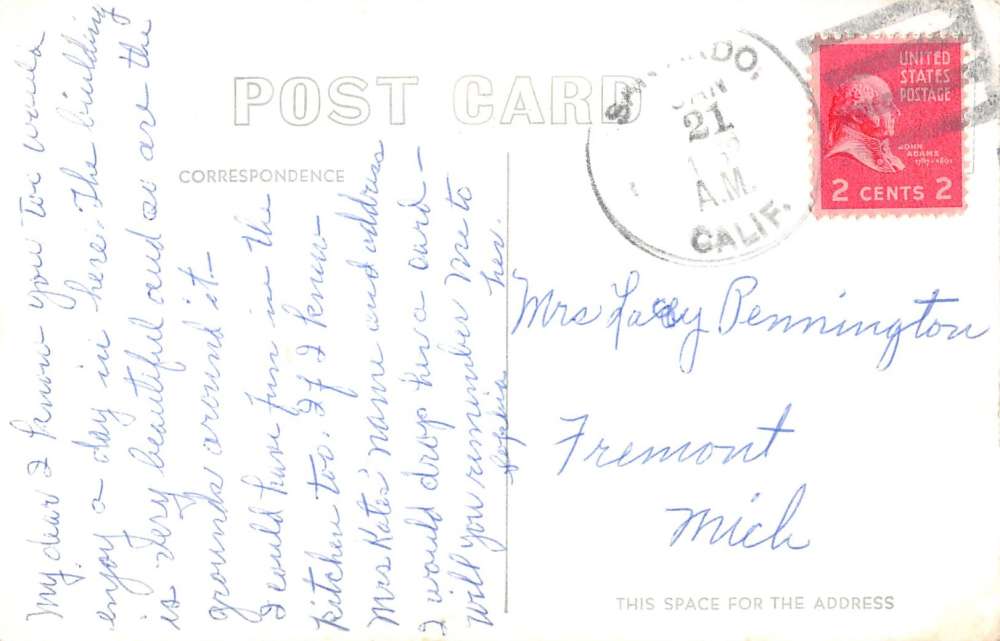 POST CARD
CORRESPONDENCE
My dear I know you too would
enjoy a day in here. The building
is very beautiful and so are the
grounds around it—
I could have fun in the
kitchen too. If I knew
Mrs Kates' name and address
I would drop her a card—
Will you remember me to
her.
Sophia
JAN
21
A.M.
CALIF.
UNITED
STATES
POSTAGE
JOHN
ADAMS
1797-1801
2 CENTS 2
Mrs Pennington
Fremont
Mich
THIS SPACE FOR THE ADDRESS